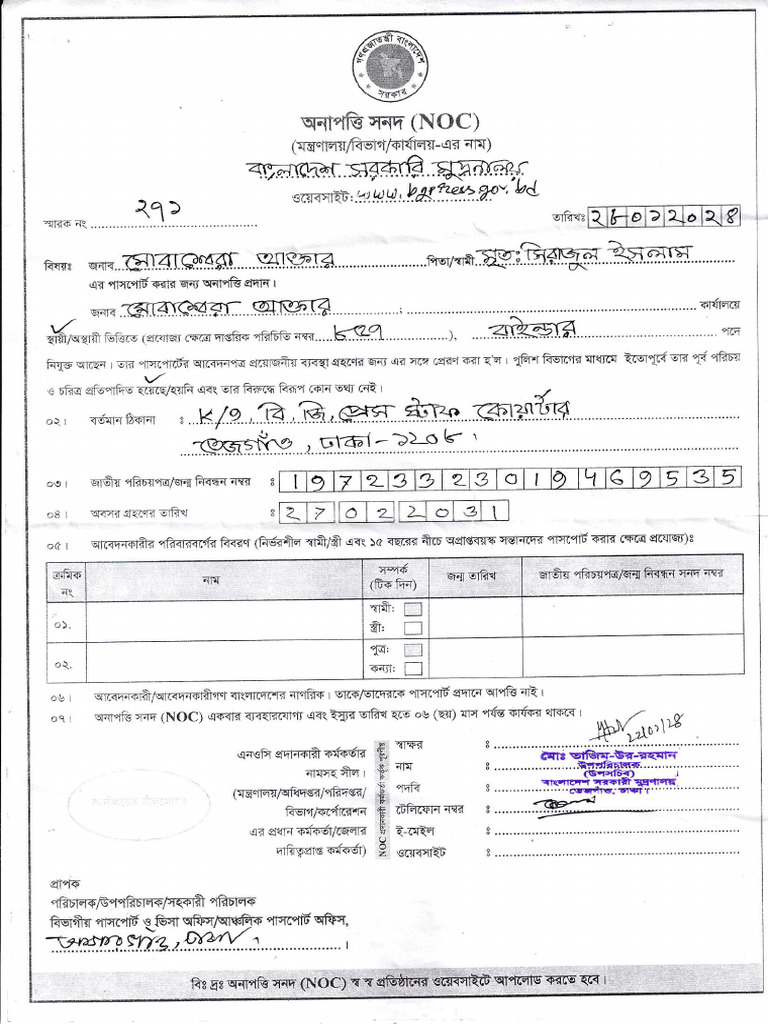 গণপ্রজাতন্ত্রী বাংলাদেশ
সরকার
অনাপত্তি সনদ (NOC)
(মন্ত্রণালয়/বিভাগ/কার্যালয়-এর নাম)
বাংলাদেশ সরকারি মুদ্রণালয়
ওয়েবসাইট: www.bgpress.gov.bd
স্মারক নং ২৭১ তারিখঃ ২৮০১২০২৪
বিষয়ঃ জনাব মোবাশ্বেরা আক্তার পিতা/স্বামী মৃত: সিরাজুল ইসলাম
এর পাসপোর্ট করার জন্য অনাপত্তি প্রদান।
জনাব মোবাশ্বেরা আক্তার ; কার্যালয়ে
স্থায়ী/অস্থায়ী ভিত্তিতে (প্রযোজ্য ক্ষেত্রে দাপ্তরিক পরিচিতি নম্বর ), বাইন্ডার পদে
নিযুক্ত আছেন। তার পাসপোর্টের আবেদনপত্র প্রয়োজনীয় ব্যবস্থা গ্রহণের জন্য এর সঙ্গে প্রেরণ করা হ'ল। পুলিশ বিভাগের মাধ্যমে ইতোপূর্বে তার পূর্ব পরিচয়
ও চরিত্র প্রতিপাদিত হয়েছে/হয়নি এবং তার বিরুদ্ধে বিরূপ কোন তথ্য নেই।
০২। বর্তমান ঠিকানা ঃ K/৭, বি, জি, প্রেস স্টাফ কোয়ার্টার
তেজগাঁও, ঢাকা-১২০৮।
০৩। জাতীয় পরিচয়পত্র/জন্ম নিবন্ধন নম্বর ঃ 19723323019469535
০৪। অবসর গ্রহণের তারিখ ঃ 27022031
০৫। আবেদনকারীর পরিবারবর্গের বিবরণ (নির্ভরশীল স্বামী/স্ত্রী এবং ১৫ বছরের নীচে অপ্রাপ্তবয়স্ক সন্তানদের পাসপোর্ট করার ক্ষেত্রে প্রযোজ্য)ঃ
ক্রমিক নং নাম সম্পর্ক (টিক দিন) জন্ম তারিখ জাতীয় পরিচয়পত্র/জন্ম নিবন্ধন সনদ নম্বর
০১. স্বামী:
স্ত্রী:
০২. পুত্র:
কন্যা:
০৬। আবেদনকারী/আবেদনকারীগণ বাংলাদেশের নাগরিক। তাকে/তাদেরকে পাসপোর্ট প্রদানে আপত্তি নাই।
০৭। অনাপত্তি সনদ (NOC) একবার ব্যবহারযোগ্য এবং ইস্যুর তারিখ হতে ০৬ (ছয়) মাস পর্যন্ত কার্যকর থাকবে।
এনওসি প্রদানকারী কর্মকর্তার
নামসহ সীল।
(মন্ত্রণালয়/অধিদপ্তর/পরিদপ্তর/
বিভাগ/কর্পোরেশন
এর প্রধান কর্মকর্তা/জেলার
দায়িত্বপ্রাপ্ত কর্মকর্তা)
NOC প্রদানকারী কর্মকর্তা কর্তৃক পূরণীয়
স্বাক্ষর ঃ 22/01/28
নাম ঃ মোঃ তাজিম-উর-রহমান
উপপরিচালক
(উপসচিব)
পদবি ঃ বাংলাদেশ সরকারী মুদ্রণালয়
তেজগাঁও, ঢাকা।
টেলিফোন নম্বর ঃ
ই-মেইল ঃ
ওয়েবসাইট ঃ
প্রাপক
পরিচালক/উপপরিচালক/সহকারী পরিচালক
বিভাগীয় পাসপোর্ট ও ভিসা অফিস/আঞ্চলিক পাসপোর্ট অফিস,
আগারগাঁও, ঢাকা।
বিঃ দ্রঃ অনাপত্তি সনদ (NOC) স্ব স্ব প্রতিষ্ঠানের ওয়েবসাইটে আপলোড করতে হবে।